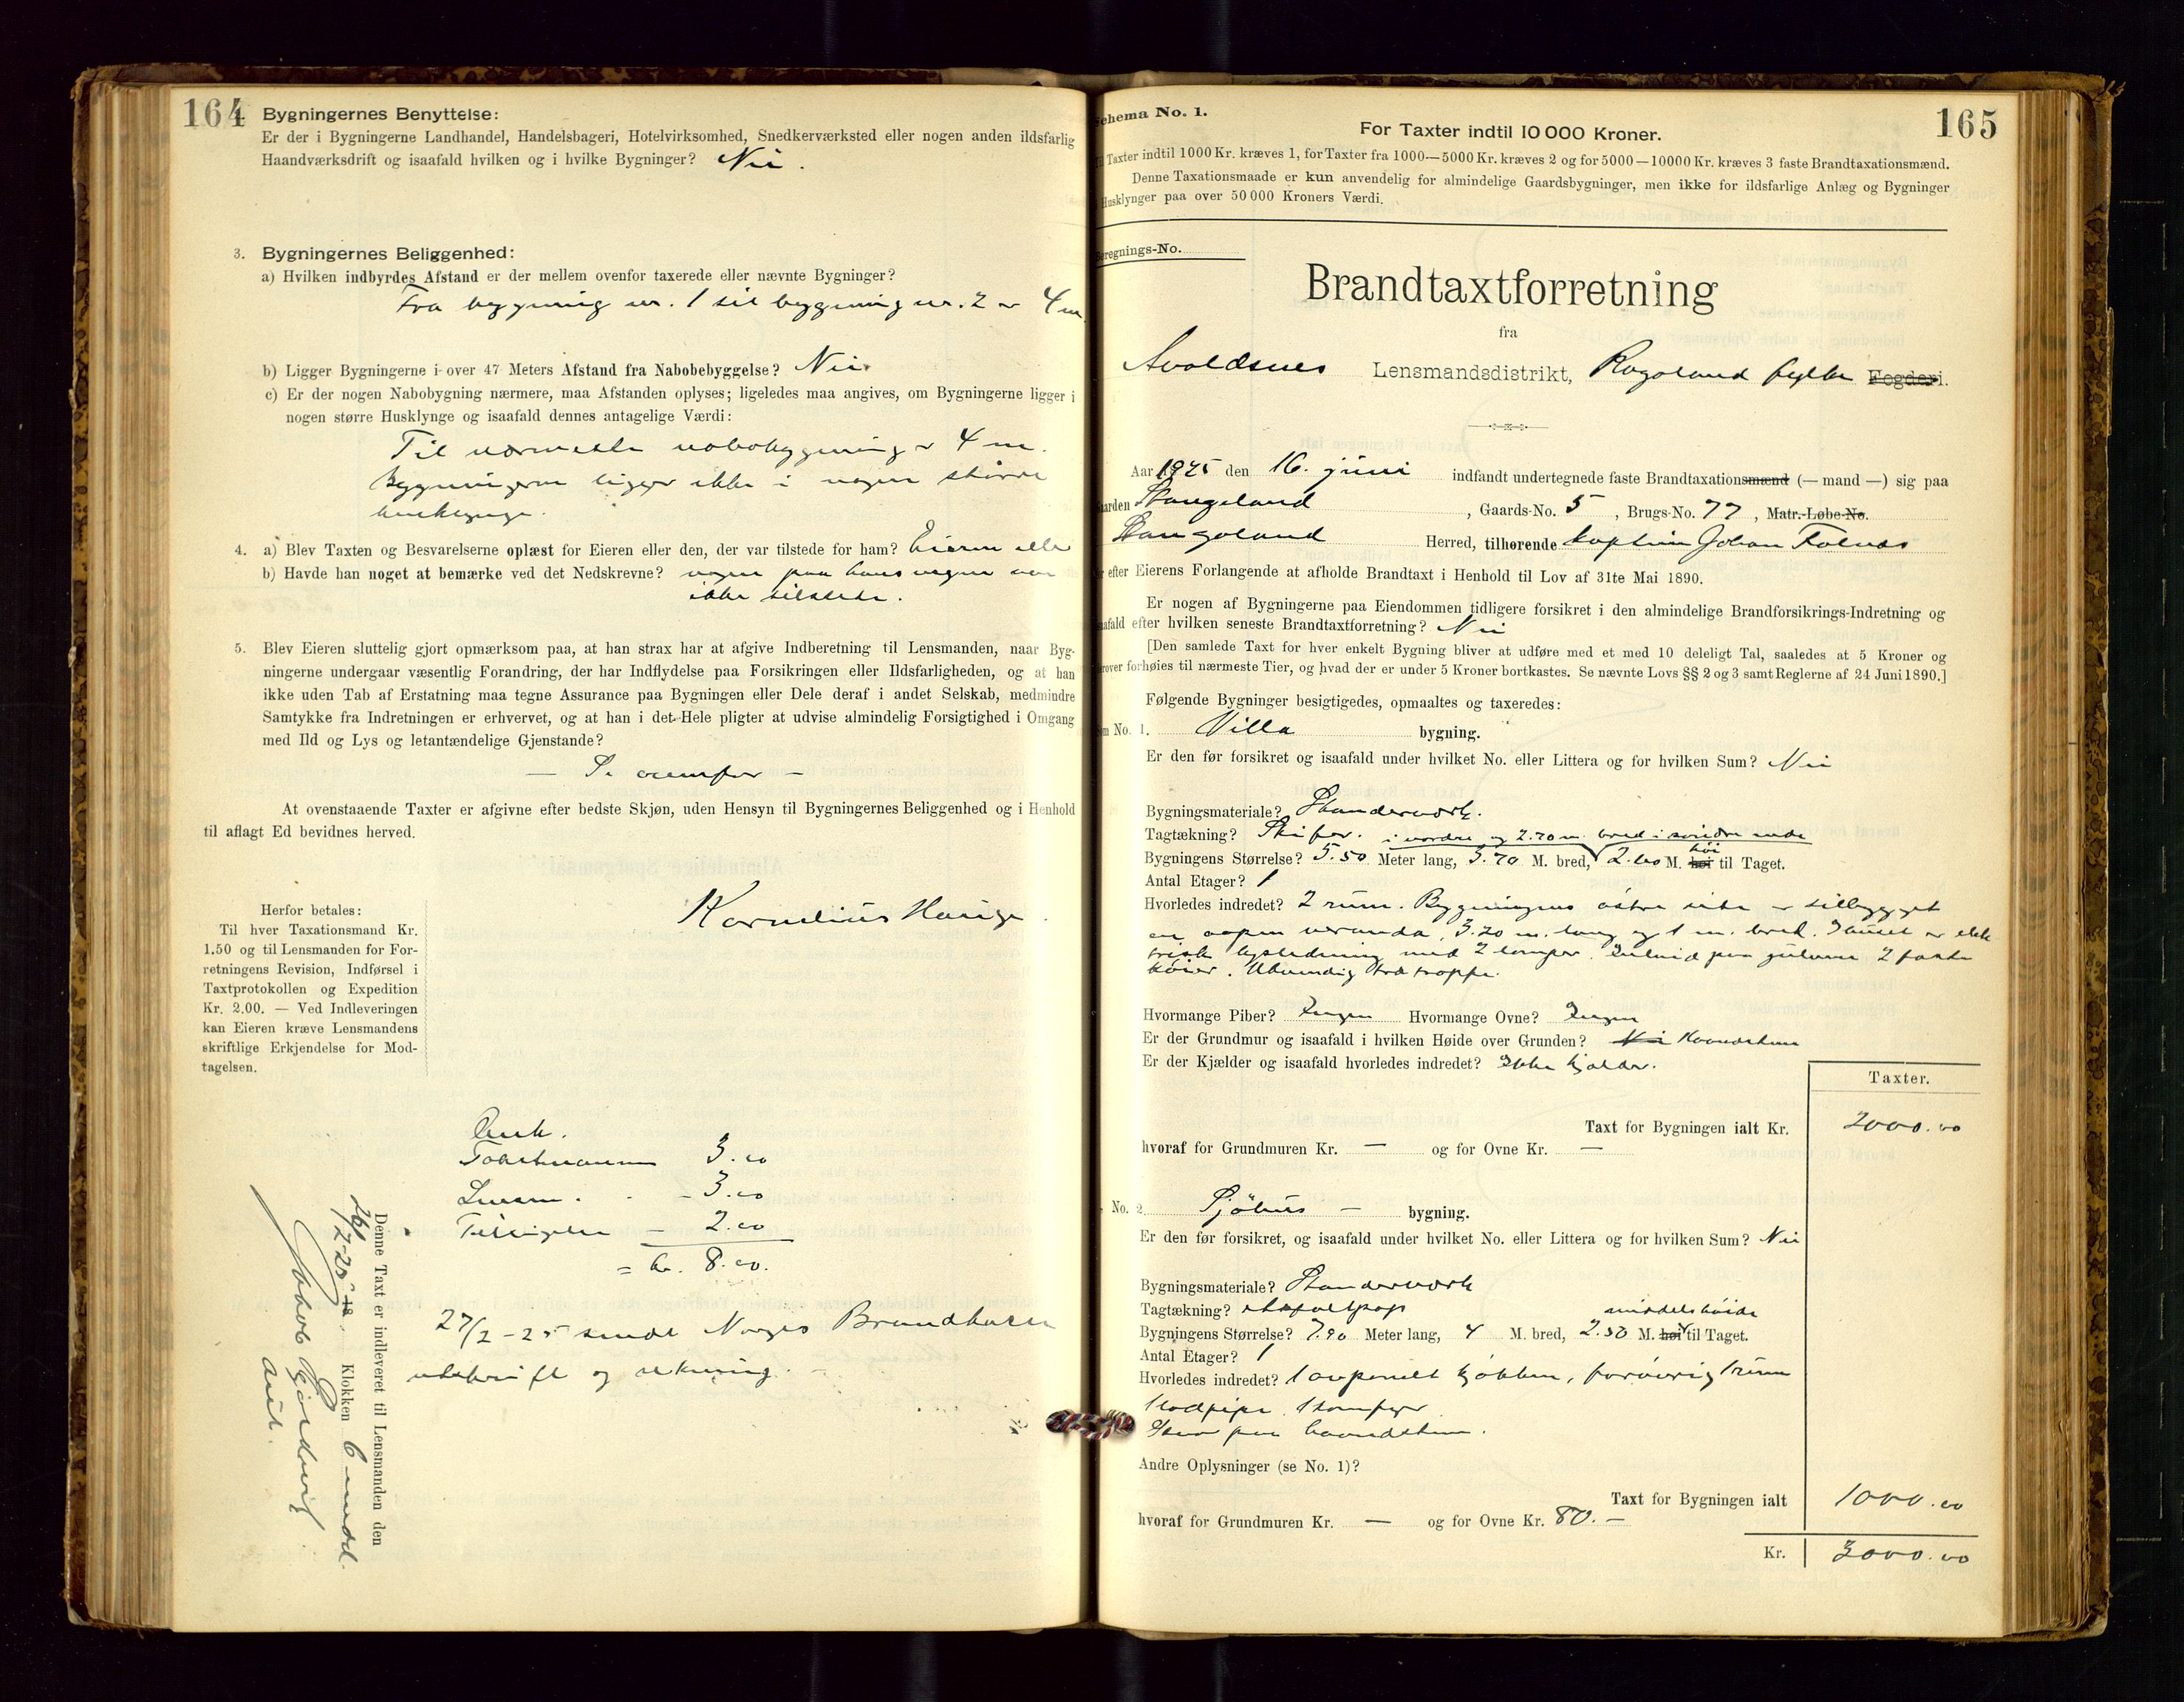 164
Bygningernes Benyttelse:
Er der i Bygningerne Landhandel, Handelsbageri, Hotelvirksomhed, Snedkerværksted eller nogen anden ildsfarlig
Haandværksdrift og isaafald hvilken og i hvilke Bygninger? Nei.
3. Bygningernes Beliggenhed:
a) Hvilken indbyrdes Afstand er der mellem ovenfor taxerede eller nævnte Bygninger?
Fra bygning nr. 1 til bygning nr. 2 er 4 m.
b) Ligger Bygningerne i over 47 Meters Afstand fra Nabobebyggelse? Nei
c) Er der nogen Nabobygning nærmere, maa Afstanden oplyses; ligeledes maa angives, om Bygningerne ligger i
nogen større Husklynge og isaafald dennes antagelige Værdi:
Til nærmeste nabobygning er 4 m.
Bygningerne ligger ikke i nogen större
husklynge.
4. a) Blev Taxten og Besvarelserne oplæst for Eieren eller den, der var tilstede for ham? Eieren eller
b) Havde han noget at bemærke ved det Nedskrevne? nogen paa hans vegne var
ikke tilstede.
5. Blev Eieren sluttelig gjort opmærksom paa, at han strax har at afgive Indberetning til Lensmanden, naar Byg-
ningerne undergaar væsentlig Forandring, der har Indflydelse paa Forsikringen eller Ildsfarligheden, og at han
ikke uden Tab af Erstatning maa tegne Assurance paa Bygningen eller Dele deraf i andet Selskab, medmindre
Samtykke fra Indretningen er erhvervet, og at han i det Hele pligter at udvise almindelig Forsigtighed i Omgang
med Ild og Lys og letantændelige Gjenstande?
— Se ovenfor —
At ovenstaaende Taxter er afgivne efter bedste Skjøn, uden Hensyn til Bygningernes Beliggenhed og i Henhold
til aflagt Ed bevidnes herved.
Kornelius Hauge.
Herfor betales:
Til hver Taxationsmand Kr.
1.50 og til Lensmanden for For-
retningens Revision, Indførsel i
Taxtprotokollen og Expedition
Kr. 2.00. — Ved Indleveringen
kan Eieren kræve Lensmandens
skriftlige Erkjendelse for Mod-
tagelsen.
3.00
Lensm. - 3.00
- 2.00
= kr. 8.00.
27/2-25 sendt Norges Brandkasse
utskrift og rekning.
Denne Taxt er indleveret til Lensmanden den
18 Klokken 6 middd.
Jakob
165
Schema No. 1.
For Taxter indtil 10 000 Kroner.
Til Taxter indtil 1000 Kr. kræves 1, for Taxter fra 1000—5000 Kr. kræves 2 og for 5000—10000 Kr. kræves 3 faste Brandtaxationsmænd.
Denne Taxationsmaade er kun anvendelig for almindelige Gaardsbygninger, men ikke for ildsfarlige Anlæg og Bygninger
Husklynger paa over 50 000 Kroners Værdi.
Beregnings-No.
Brandtaxtforretning
fra
Avaldsnes Lensmandsdistrikt, Rogaland fylke Fogderi.
Aar 1925 den 16. juni indfandt undertegnede faste Brandtaxationsmænd (— mand —) sig paa
Gaarden Stangeland, Gaards-No. 5, Brugs-No. 77, Matr.-Løbe-No.
Stangaland Herred, tilhørende kaptein Johan Falnes
efter Eierens Forlangende at afholde Brandtaxt i Henhold til Lov af 31te Mai 1890.
Er nogen af Bygningerne paa Eiendommen tidligere forsikret i den almindelige Brandforsikrings-Indretning og
isaafald efter hvilken seneste Brandtaxtforretning? Nei
[Den samlede Taxt for hver enkelt Bygning bliver at udføre med et med 10 deleligt Tal, saaledes at 5 Kroner og
derover forhøies til nærmeste Tier, og hvad der er under 5 Kroner bortkastes. Se nævnte Lovs §§ 2 og 3 samt Reglerne af 24 Juni 1890.]
Følgende Bygninger besigtigedes, opmaaltes og taxeredes:
No. 1. Villa bygning.
Er den før forsikret og isaafald under hvilket No. eller Littera og for hvilken Sum? Nei
Bygningsmateriale? Standerværk.
Tagtækning? Skifer. i nordre og 2.70 m. bred i söndre ende
Bygningens Størrelse? 5.50 Meter lang, 3.70 M. bred, 2.60 M. høi til Taget.
Antal Etager? 1
Hvorledes indredet? 2 rum. Bygningens östre side er tilbygget
en aapen veranda, 3.20 m. lang og 1 m. bred. I huset er elek
trisk lysledning med 2 lamper. paa gulvene 2 faste
köier. Utvendig trætrappe.
Hvormange Piber? Ingen Hvormange Ovne? Ingen
Er der Grundmur og isaafald i hvilken Høide over Grunden? Nei
Er der Kjælder og isaafald hvorledes indredet? Ikke kjelder.
Taxter.
Taxt for Bygningen ialt Kr. 2000.00
hvoraf for Grundmuren Kr. — og for Ovne Kr. —
No. 2. Sjöhus — bygning.
Er den før forsikret, og isaafald under hvilket No. eller Littera og for hvilken Sum? Nei
Bygningsmateriale? Standerværk
Tagtækning? Asfaltpap middels höide
Bygningens Størrelse? 7.90 Meter lang, 4 M. bred, 2.50 M. høi til Taget.
Antal Etager? 1
Hvorledes indredet? 1 kjökken, forövrig 1 rum
1 komfyr
Andre Oplysninger (se No. 1)?
Taxt for Bygningen ialt 1000.00
hvoraf for Grundmuren Kr. — og for Ovne Kr. 80. —
Kr. 3000.00